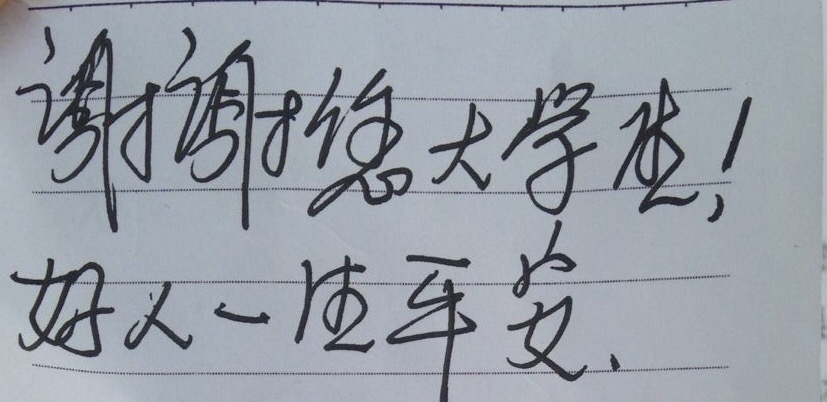 谢谢您大学生！
好人一生平安.